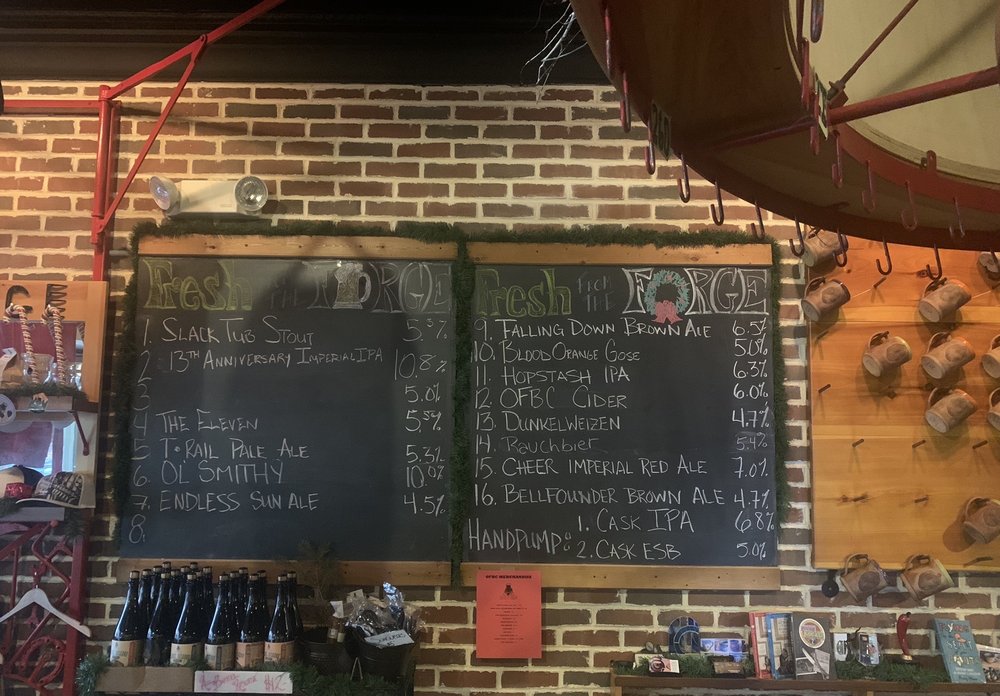 Fresh FROM THE FORGE
1. SLACK TUB STOUT 5.5%
2 13TH ANNIVERSARY IMPERIAL IPA 10.8%
3 5.0%
4 THE ELEVEN 5.5%
5 T-RAIL PALE ALE 5.3%
6. OL' SMITHY 10.0%
7. ENDLESS SUN ALE 4.5%
8.
Fresh FROM THE FORGE
9. FALLING DOWN BROWN ALE 6.5%
10. BLOOD ORANGE GOSE 5.0%
11. HOPSTASH IPA 6.3%
12. OFBC CIDER 6.0%
13. DUNKELWEIZEN 4.7%
14. Rauchbier 5.4%
15. CHEER IMPERIAL RED ALE 7.0%
16. BELLFOUNDER BROWN ALE 4.7%
HANDPUMP: 1. CASK IPA 6.8%
2. CASK ESB 5.0%
OFBC MERCHANDISE